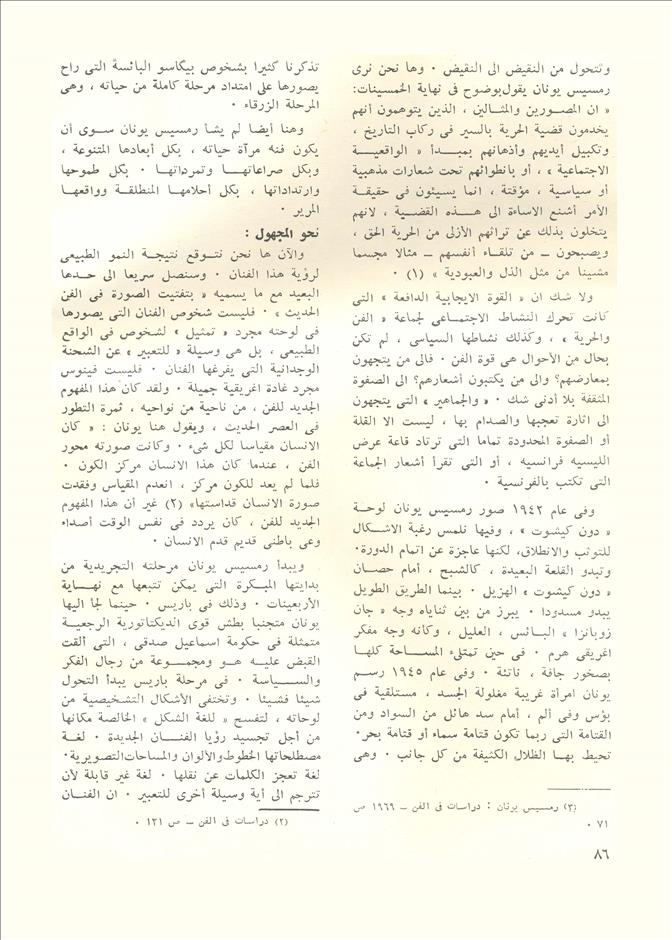 وتتحول من النقيض الى النقيض ٠ وها نحن نرى
رمسيس يونان يقول بوضوح فى نهاية الخمسينات:
« ان المصورين والمثالين ، الذين يتوهمون أنهم
يخدمون قضية الحرية بالسير فى ركاب التاريخ ،
وتكبيل أيديهم وأذهانهم بمبدأ « الواقعية
الاجتماعية » ، أو بانطوائهم تحت شعارات مذهبية
أو سياسية ، مؤقتة ، انما يسيئون فى حقيقة
الأمر أشنع الاساءة الى هذه القضية ، لانهم
يتخلون بذلك عن تراثهم الأزلى من الحرية الحق ،
ويصبحون ــ من تلقاء أنفسهم ــ مثالا مجسما
مشينا من مثل الذل والعبودية » (١) ٠
ولا شك ان « القوة الايجابية الدافعة » التى
كانت تحرك النشاط الاجتماعى لجماعة « الفن
والحرية » ، وكذلك نشاطها السياسى ، لم تكن
بحال من الأحوال هى قوة الفن ٠ فالى من يتجهون
بمعارضهم؟ والى من يكتبون أشعارهم؟ الى الصفوة
المثقفة بلا أدنى شك ٠ « والجماهير » التى يتجهون
الى اثارة تعجبها والصدام بها ، ليست الا القلة
أو الصفوة المحدودة تماما التى ترتاد قاعة عرض
الليسيه فرانسيه ، أو التى تقرأ أشعار الجماعة
التى تكتب بالفرنسية ٠
وفى عام ١٩٤٢ صور رمسيس يونان لوحة
« دون كيشوت » ، وفيها نلمس رغبة الاشكال
للتوثب والانطلاق، لكنها عاجزة عن اتمام الدورة٠
وتبدو القلعة البعيدة ، كالشبح ، أمام حصان
« دون كيشوت » الهزيل ٠ بينما الطريق الطويل
يبدو مسدودا ٠ يبرز من بين ثناياه وجه « جان
زوبانزا » البائس ، العليل ، وكأنه وجه مفكر
اغريقى هرم ٠ فى حين تمتلىء المساحة كلها
بصخور جافة ، ناتئة ٠ وفى عام ١٩٤٥ رسم
يونان امرأة غريبة مغلولة الجسد ، مستلقية فى
بؤس وفى ألم ، أمام سد هائل من السواد ومن
القتامة التى ربما تكون قتامة سماء أو قتامة بحر٠
تحيط بها الظلال الكثيفة من كل جانب ٠ وهى
(٣) رمسيس يونان : دراسات فى الفن ــ ١٩٦٩ ص
٧١ ٠
تذكرنا كثيرا بشخوص بيكاسو البائسة التى راح
يصورها على امتداد مرحلة كاملة من حياته ، وهى
المرحلة الزرقاء ٠
وهنا أيضا لم يشأ رمسيس يونان سوى أن
يكون فنه مرآة حياته ، بكل أبعادها المتنوعة ،
وبكل صراعاتها وتمرداتها ٠ بكل طموحها
وارتداداتها ، بكل أحلامها المنطلقة وواقعها
المرير ٠
نحو المجهول :
والآن ها نحن نتوقع نتيجة النمو الطبيعى
لرؤية هذا الفنان ٠ وسنصل سريعا الى حدها
البعيد مع ما يسميه « بتفتيت الصورة فى الفن
الحديث » ٠ فليست شخوص الفنان التى يصورها
فى لوحته مجرد « تمثيل » لشخوص فى الواقع
الطبيعى ، بل هى وسيلة « للتعبير » عن الشحنة
الوجدانية التى يفرغها الفنان ٠ فليست فينوس
مجرد غادة اغريقية جميلة ٠ ولقد كان هذا المفهوم
الجديد للفن ، من ناحية من نواحيه ، ثمرة التطور
فى العصر الحديث ، ويقول هنا يونان : « كان
الانسان مقياسا لكل شىء ٠ وكانت صورته محور
الفن ، عندما كان هذا الانسان مركز الكون ٠
فلما لم يعد للكون مركز ، انعدم المقياس وفقدت
صورة الانسان قداستها» (٢) غير أن هذا المفهوم
الجديد للفن ، كان يردد فى نفس الوقت أصداء
وعى باطنى قديم قدم الانسان ٠
ويبدأ رمسيس يونان مرحلته التجريدية من
بدايتها المبكرة التى يمكن تتبعها مع نهاية
الأربعينات ٠ وذلك فى باريس ٠ حينما لجأ اليها
يونان متجنبا بطش قوى الديكتاتورية الرجعية
متمثلة فى حكومة اسماعيل صدقى ، التى ألقت
القبض عليه هو ومجموعة من رجال الفكر
والسياسة ٠ فى مرحلة باريس يبدأ التحول
شيئا فشيئا ٠ وتختفى الأشكال التشخيصية من
لوحاته ، لتفسح « للغة الشكل » الخالصة مكانها
من أجل تجسيد رؤيا الفنان الجديدة ٠ لغة
مصطلحاتها الخطوط والألوان والمساحات التصويرية٠
لغة تعجز الكلمات عن نقلها ٠ لغة غير قابلة لأن
تترجم الى أية وسيلة أخرى للتعبير ٠ ان الفنان
(٢) دراسات فى الفن ــ ص ١٣١ ٠
٨٦